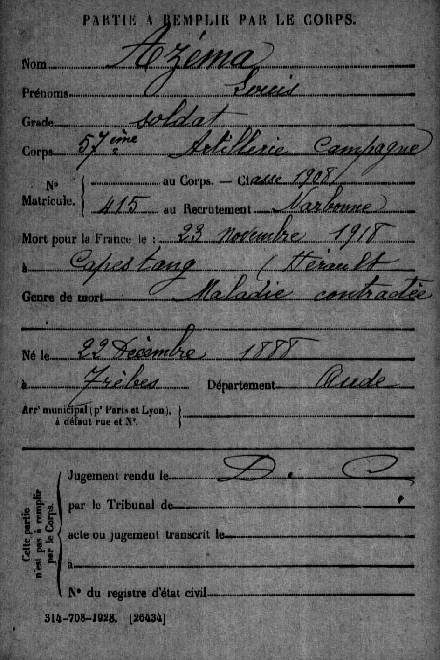 PARTIE À REMPLIR PAR LE CORPS.
Nom Azéma
Prénoms Louis
Grade soldat
Corps 57ème Artillerie Campagne
N° Matricule. { au Corps. — Classe 1908
415 au Recrutement Narbonne
Mort pour la France le : 23 novembre 1918
à Capestang (Hérault
Genre de mort Maladie contractée
Né le 22 Décembre 1888
à Trèbes Département Aude
Arrt municipal (pr Paris et Lyon), }
à défaut rue et N°.
Cette partie n'est pas à remplir par le Corps.
Jugement rendu le D. C.
par le Tribunal de
acte ou jugement transcrit le
à
N° du registre d'état civil
314-708-1928. [26434]